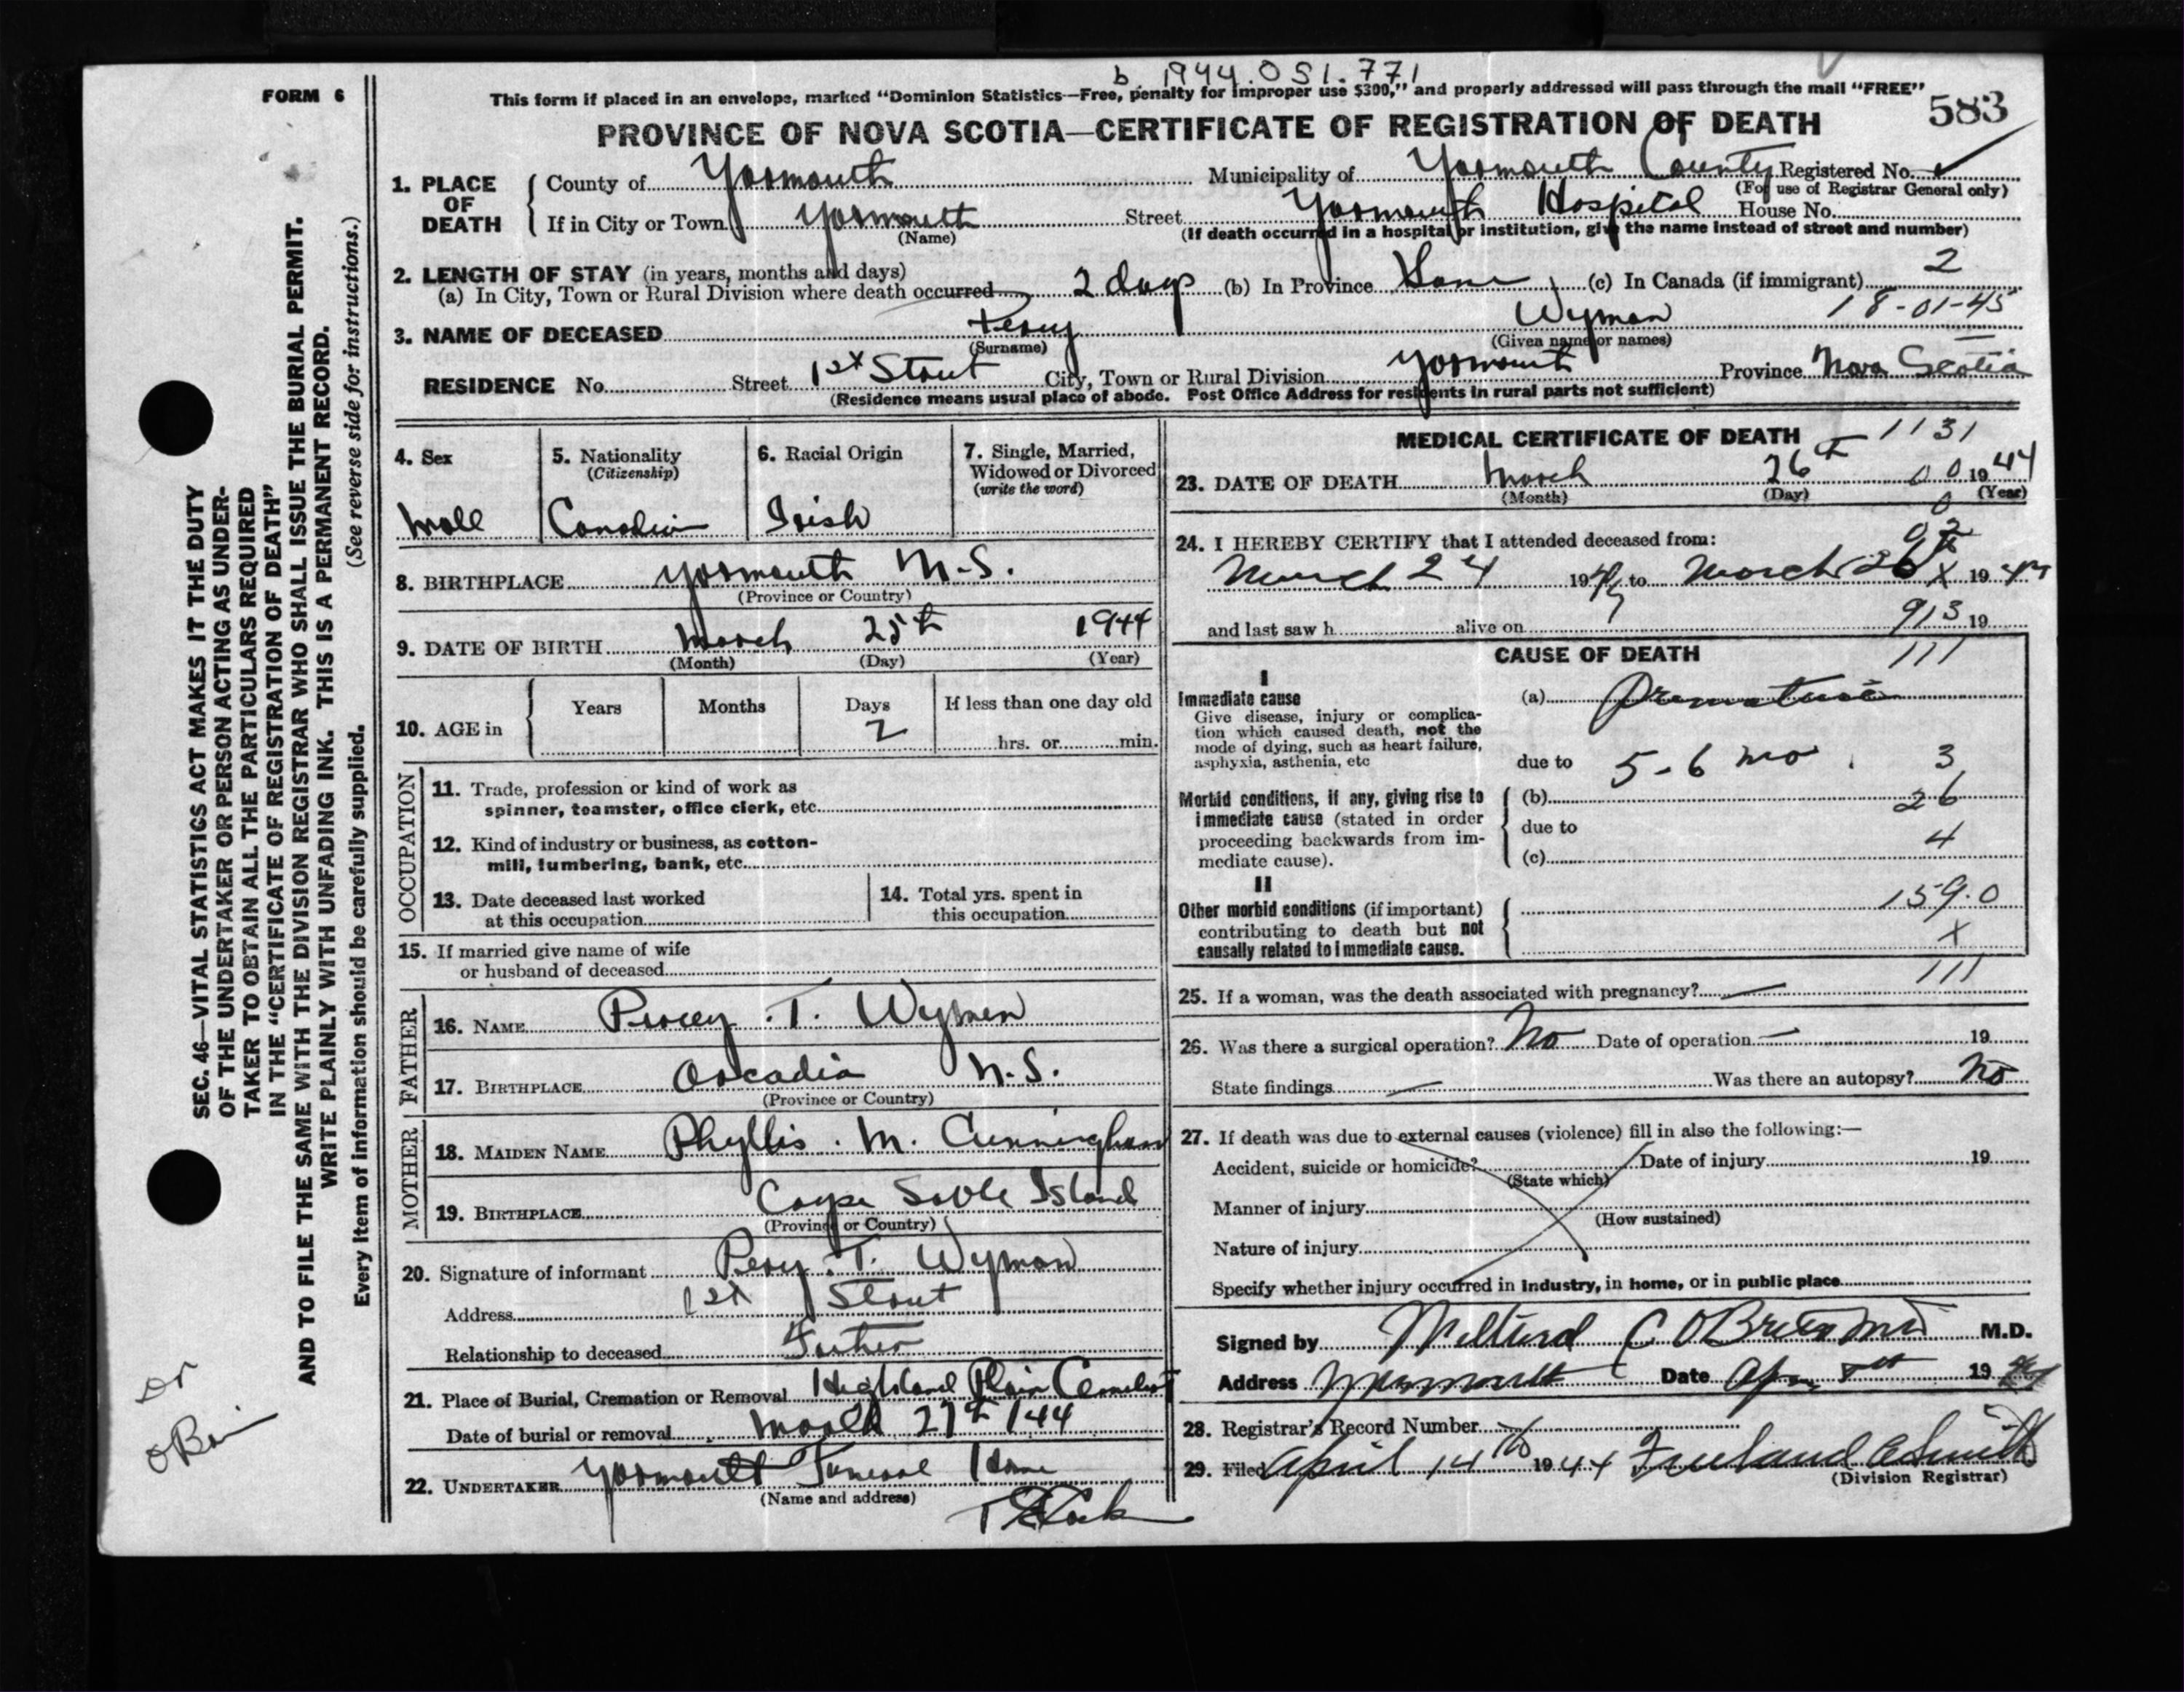 b. 1944.051.771
FORM 6
This form if placed in an envelope, marked "Dominion Statistics—Free, penalty for improper use $300," and properly addressed will pass through the mail "FREE"
583
PROVINCE OF NOVA SCOTIA—CERTIFICATE OF REGISTRATION OF DEATH
1. PLACE OF DEATH
County of Yarmouth Municipality of Yarmouth County Registered No.
(For use of Registrar General only)
If in City or Town Yarmouth Street Yarmouth Hospital House No.
(Name) (If death occurred in a hospital or institution, give the name instead of street and number)
2. LENGTH OF STAY (in years, months and days)
(a) In City, Town or Rural Division where death occurred 2 days (b) In Province Same (c) In Canada (if immigrant) 2
18-01-45
3. NAME OF DECEASED Percy Wyman
(Surname) (Given name or names)
RESIDENCE No. Street 1st Street City, Town or Rural Division Yarmouth Province Nova Scotia
(Residence means usual place of abode. Post Office Address for residents in rural parts not sufficient)
4. Sex
Male
5. Nationality
(Citizenship)
Canadian
6. Racial Origin
Irish
7. Single, Married, Widowed or Divorced
(write the word)
8. BIRTHPLACE Yarmouth N.S.
(Province or Country)
9. DATE OF BIRTH March 25th 1944
(Month) (Day) (Year)
10. AGE in
Years Months Days If less than one day old
2 hrs. or min.
OCCUPATION
11. Trade, profession or kind of work as
spinner, teamster, office clerk, etc.
12. Kind of industry or business, as cotton-
mill, lumbering, bank, etc.
13. Date deceased last worked
at this occupation
14. Total yrs. spent in
this occupation
15. If married give name of wife
or husband of deceased
FATHER
16. NAME Percy T. Wyman
17. BIRTHPLACE Arcadia N.S.
(Province or Country)
MOTHER
18. MAIDEN NAME Phyllis M. Cunningham
19. BIRTHPLACE Cape Sable Island
(Province or Country)
20. Signature of informant Percy T. Wyman
Address 1st Street
Relationship to deceased Father
21. Place of Burial, Cremation or Removal Highland Plain Cemetery
Date of burial or removal March 27th /44
22. UNDERTAKER Yarmouth Funeral Home
(Name and address)
MEDICAL CERTIFICATE OF DEATH 1131
23. DATE OF DEATH March 26th 00 1944
(Month) (Day) (Year)
0
24. I HEREBY CERTIFY that I attended deceased from:
March 24 1944 to March 26 X 1944
and last saw h alive on 913 19
CAUSE OF DEATH 111
I
Immediate cause
Give disease, injury or complica-
tion which caused death, not the
mode of dying, such as heart failure,
asphyxia, asthenia, etc
(a) Premature
due to 5-6 mo. 3
Morbid conditions, if any, giving rise to
immediate cause (stated in order
proceeding backwards from im-
mediate cause).
(b) 26
due to 4
(c)
II
Other morbid conditions (if important)
contributing to death but not
causally related to immediate cause.
159.0
X
111
25. If a woman, was the death associated with pregnancy? —
26. Was there a surgical operation? No Date of operation — 19
State findings — Was there an autopsy? No
27. If death was due to external causes (violence) fill in also the following:—
Accident, suicide or homicide? Date of injury 19
(State which)
Manner of injury
(How sustained)
Nature of injury
Specify whether injury occurred in industry, in home, or in public place
Signed by C O'Brien MD M.D.
Address Yarmouth Date Apr 8th 1944
28. Registrar's Record Number
29. Filed April 14th 1944 Freeland Smith
(Division Registrar)
SEC. 46—VITAL STATISTICS ACT MAKES IT THE DUTY
OF THE UNDERTAKER OR PERSON ACTING AS UNDER-
TAKER TO OBTAIN ALL THE PARTICULARS REQUIRED
IN THE "CERTIFICATE OF REGISTRATION OF DEATH"
AND TO FILE THE SAME WITH THE DIVISION REGISTRAR WHO SHALL ISSUE THE BURIAL PERMIT.
WRITE PLAINLY WITH UNFADING INK. THIS IS A PERMANENT RECORD.
Every item of information should be carefully supplied. (See reverse side for instructions.)
Dr